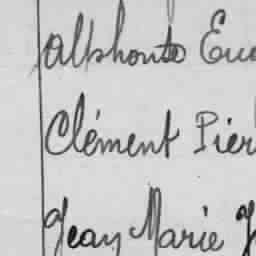 Alphonse Eu
Clément Pier
Jean Marie J